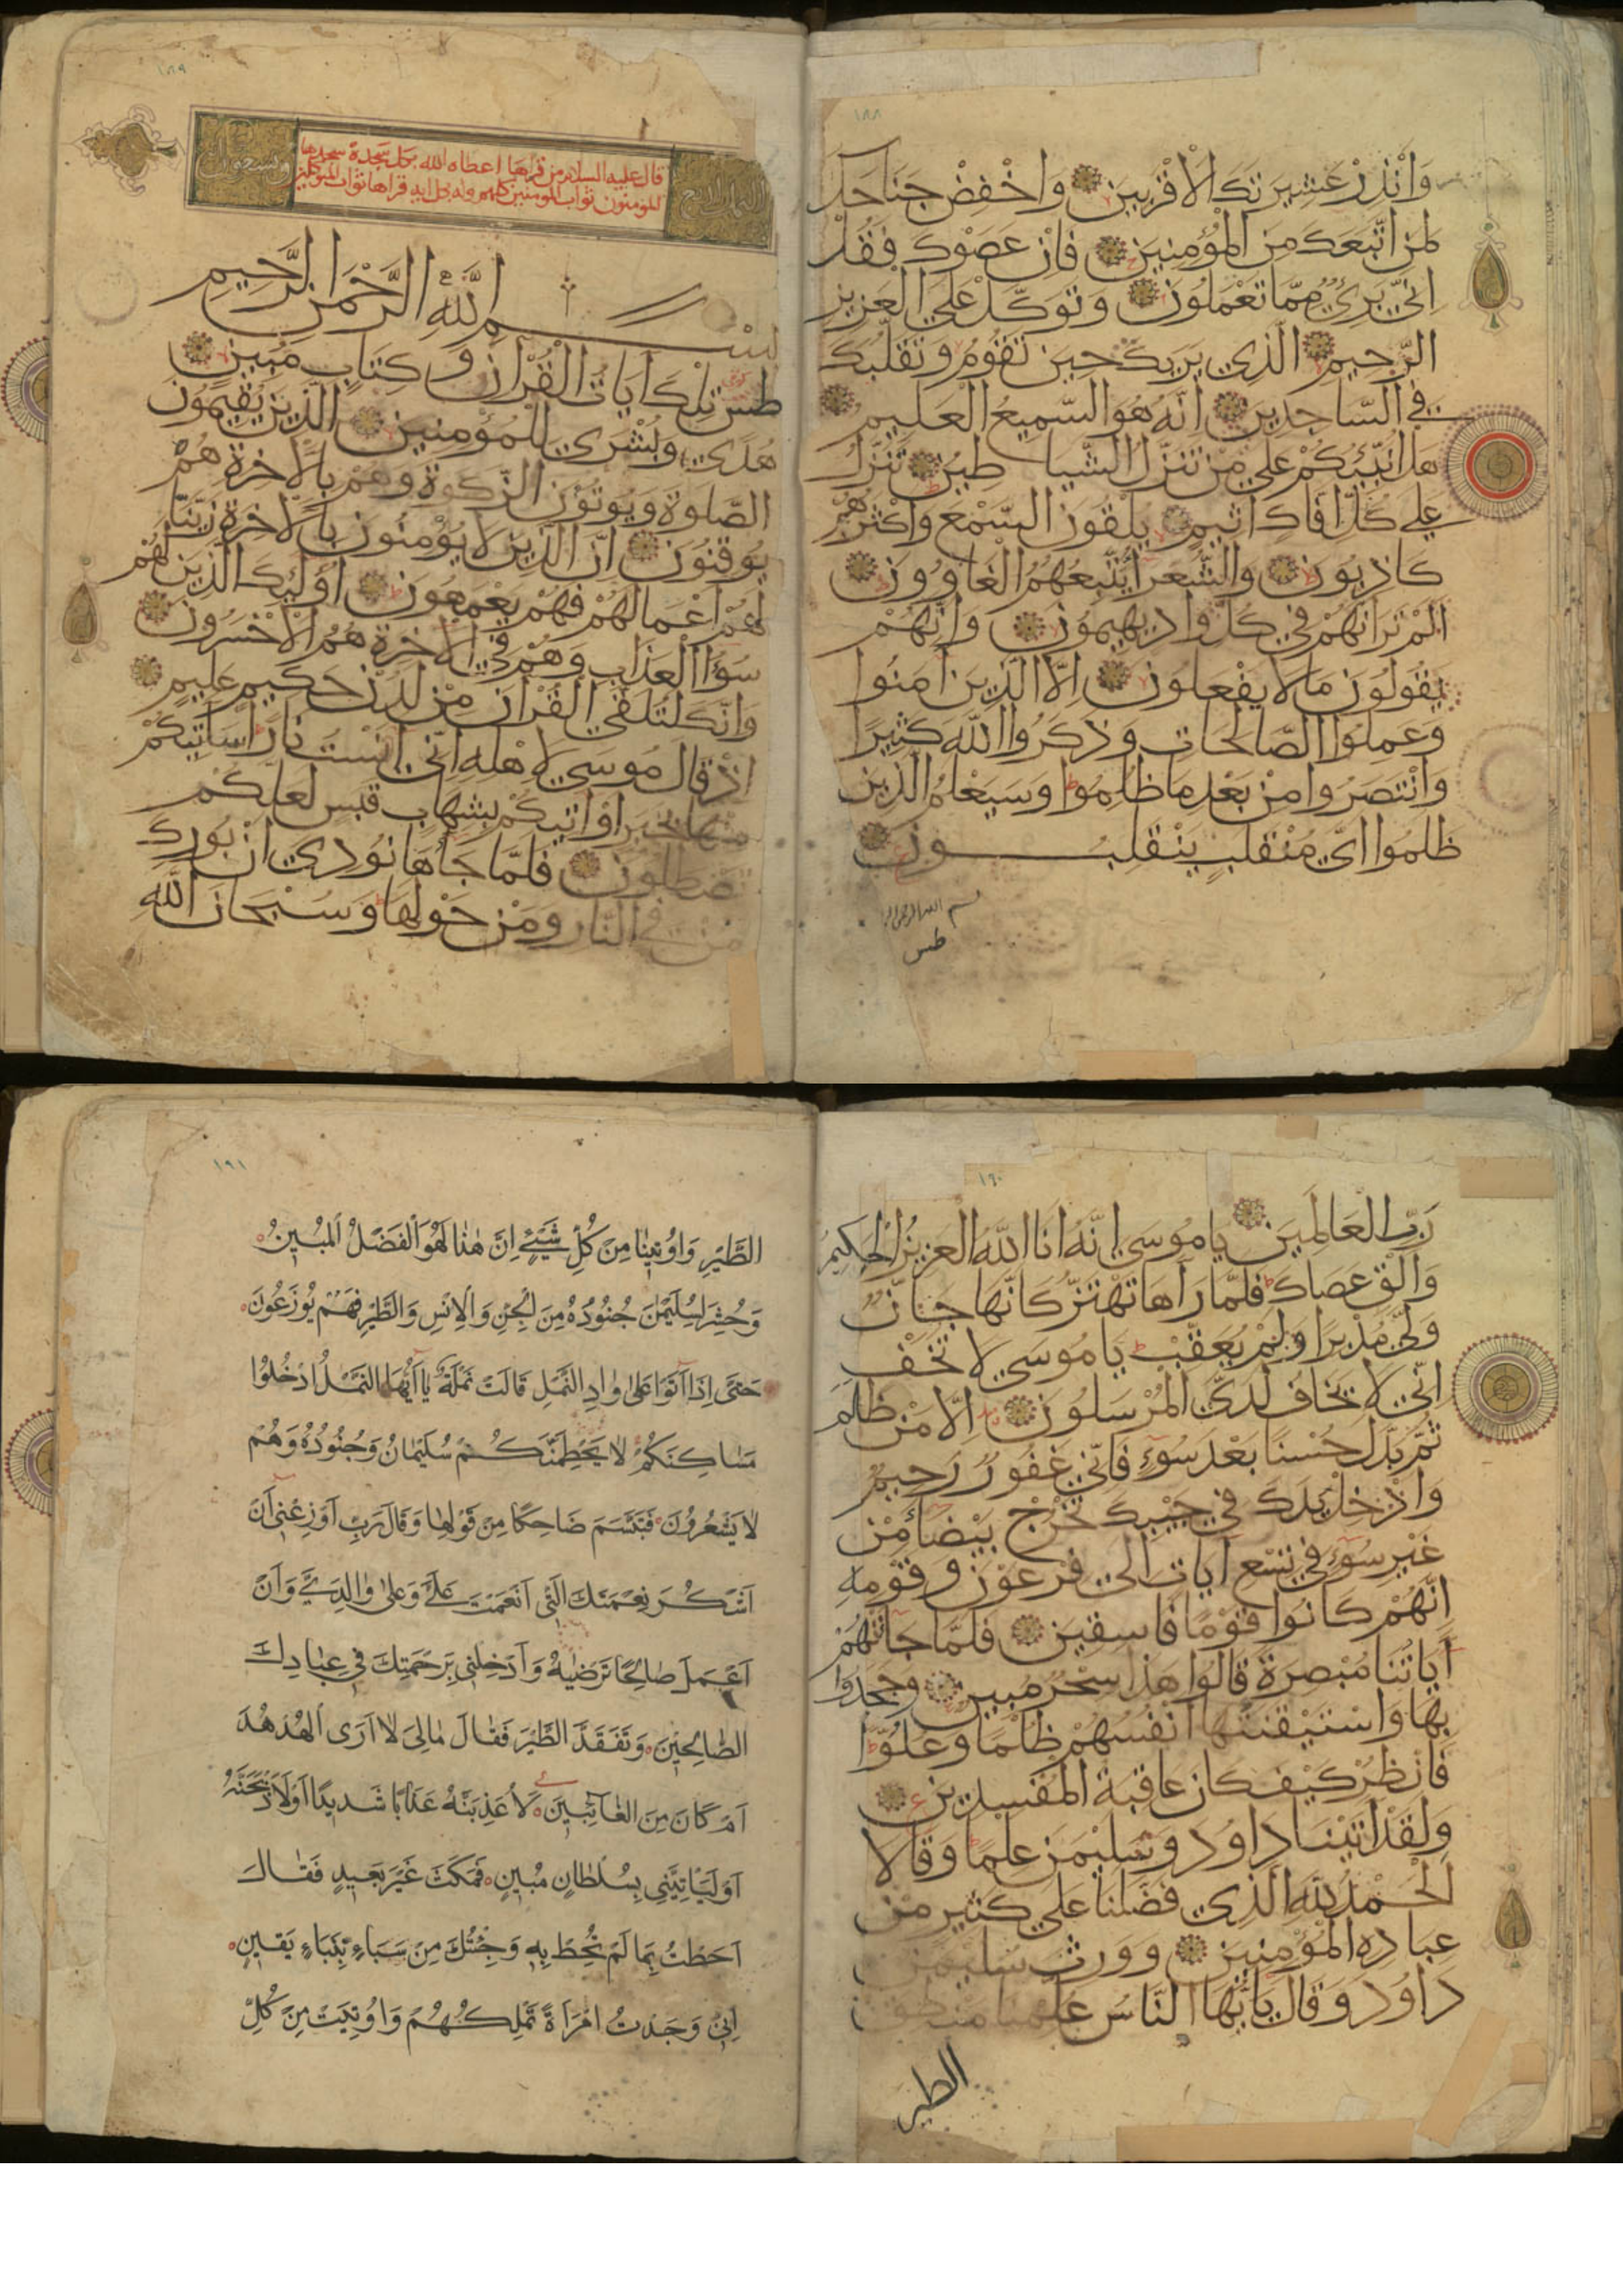 ١٨٨
وَانْذِرْ عَشِيرَتَكَ الْاَقْرَبِينَ وَاخْفِضْ جَنَاحَكَ
لِمَنِ اتَّبَعَكَ مِنَ الْمُؤْمِنِينَ فَاِنْ عَصَوْكَ فَقُلْ
اِنِّي بَرِيءٌ مِمَّا تَعْمَلُونَ وَتَوَكَّلْ عَلَي الْعَزِيزِ
الرَّحِيمِ الَّذِي يَرَيكَ حِينَ تَقُومُ وَتَقَلُّبَكَ
فِي السَّاجِدِينَ اِنَّهُ هُوَ السَّمِيعُ الْعَلِيمُ
هَلْ اُنَبِّئُكُمْ عَلَي مَنْ تَنَزَّلُ الشَّيَاطِينُ تَنَزَّلُ
عَلَي كُلِّ اَفَّاكٍ اَثِيمٍ يُلْقُونَ السَّمْعَ وَاَكْثَرُهُمْ
كَاذِبُونَ وَالشُّعَرَاءُ يَتَّبِعُهُمُ الْغَاوُونَ
اَلَمْ تَرَ اَنَّهُمْ فِي كُلِّ وَادٍ يَهِيمُونَ وَاَنَّهُمْ
يَقُولُونَ مَا لَا يَفْعَلُونَ اِلَّا الَّذِينَ اٰمَنُوا
وَعَمِلُوا الصَّالِحَاتِ وَذَكَرُوا اللّٰهَ كَثِيرًا
وَانْتَصَرُوا مِنْ بَعْدِ مَا ظُلِمُوا وَسَيَعْلَمُ الَّذِينَ
ظَلَمُوا اَيَّ مُنْقَلَبٍ يَنْقَلِبُونَ
بسم الله الرحمن الر
طس
١٨٩
قال عليه السلام من قرأها اعطاه الله بكل سجدة سجدها
المؤمنون ثواب المؤمنين كلهم وله بكل اية قرأها ثواب المتوكلين
بِسْمِ اللّٰهِ الرَّحْمٰنِ الرَّحِيمِ
طس تِلْكَ اٰيَاتُ الْقُرْاٰنِ وَكِتَابٍ مُبِينٍ
هُدًي وَبُشْرَي لِلْمُؤْمِنِينَ الَّذِينَ يُقِيمُونَ
الصَّلٰوةَ وَيُؤْتُونَ الزَّكٰوةَ وَهُمْ بِالْاٰخِرَةِ هُمْ
يُوقِنُونَ اِنَّ الَّذِينَ لَا يُؤْمِنُونَ بِالْاٰخِرَةِ زَيَّنَّا
لَهُمْ اَعْمَالَهُمْ فَهُمْ يَعْمَهُونَ اُولٰئِكَ الَّذِينَ لَهُمْ
سُوءُ الْعَذَابِ وَهُمْ فِي الْاٰخِرَةِ هُمُ الْاَخْسَرُونَ
وَاِنَّكَ لَتُلَقَّي الْقُرْاٰنَ مِنْ لَدُنْ حَكِيمٍ عَلِيمٍ
اِذْ قَالَ مُوسَي لِاَهْلِهِ اِنِّي اٰنَسْتُ نَارًا سَاٰتِيكُمْ
مِنْهَا بِخَبَرٍ اَوْ اٰتِيكُمْ بِشِهَابٍ قَبَسٍ لَعَلَّكُمْ
تَصْطَلُونَ فَلَمَّا جَاءَهَا نُودِيَ اَنْ بُورِكَ
مَنْ فِي النَّارِ وَمَنْ حَوْلَهَا وَسُبْحَانَ اللّٰهِ
١٩٠
رَبِّ الْعَالَمِينَ يَا مُوسَي اِنَّهُ اَنَا اللّٰهُ الْعَزِيزُ الْحَكِيمُ
وَاَلْقِ عَصَاكَ فَلَمَّا رَاٰهَا تَهْتَزُّ كَاَنَّهَا جَانٌّ
وَلَّي مُدْبِرًا وَلَمْ يُعَقِّبْ يَا مُوسَي لَا تَخَفْ
اِنِّي لَا يَخَافُ لَدَيَّ الْمُرْسَلُونَ اِلَّا مَنْ ظَلَمَ
ثُمَّ بَدَّلَ حُسْنًا بَعْدَ سُوءٍ فَاِنِّي غَفُورٌ رَحِيمٌ
وَاَدْخِلْ يَدَكَ فِي جَيْبِكَ تَخْرُجْ بَيْضَاءَ مِنْ
غَيْرِ سُوءٍ فِي تِسْعِ اٰيَاتٍ اِلَي فِرْعَوْنَ وَقَوْمِهِ
اِنَّهُمْ كَانُوا قَوْمًا فَاسِقِينَ فَلَمَّا جَاءَتْهُمْ
اٰيَاتُنَا مُبْصِرَةً قَالُوا هَذَا سِحْرٌ مُبِينٌ وَجَحَدُوا
بِهَا وَاسْتَيْقَنَتْهَا اَنْفُسُهُمْ ظُلْمًا وَعُلُوًّا
فَانْظُرْ كَيْفَ كَانَ عَاقِبَةُ الْمُفْسِدِينَ
وَلَقَدْ اٰتَيْنَا دَاوُدَ وَسُلَيْمٰنَ عِلْمًا وَقَالَا
الْحَمْدُ لِلّٰهِ الَّذِي فَضَّلَنَا عَلَي كَثِيرٍ مِنْ
عِبَادِهِ الْمُؤْمِنِينَ وَوَرِثَ سُلَيْمٰنُ
دَاوُدَ وَقَالَ يَا اَيُّهَا النَّاسُ عُلِّمْنَا مَنْطِقَ
الطير
١٩١
الطَّيْرِ وَاُوتِينَا مِنْ كُلِّ شَيْءٍ اِنَّ هٰذَا لَهُوَ الْفَضْلُ الْمُبِينُ
وَحُشِرَ لِسُلَيْمٰنَ جُنُودُهُ مِنَ الْجِنِّ وَالْاِنْسِ وَالطَّيْرِ فَهُمْ يُوزَعُونَ
حَتّٰى اِذَا اَتَوْا عَلٰى وَادِ النَّمْلِ قَالَتْ نَمْلَةٌ يَا اَيُّهَا النَّمْلُ ادْخُلُوا
مَسَاكِنَكُمْ لَا يَحْطِمَنَّكُمْ سُلَيْمَانُ وَجُنُودُهُ وَهُمْ
لَا يَشْعُرُونَ فَتَبَسَّمَ ضَاحِكًا مِنْ قَوْلِهَا وَقَالَ رَبِّ اَوْزِعْنِى اَنْ
اَشْكُرَ نِعْمَتَكَ الَّتِى اَنْعَمْتَ عَلَىَّ وَعَلٰى وَالِدَىَّ وَاَنْ
اَعْمَلَ صَالِحًا تَرْضٰيهُ وَاَدْخِلْنِى بِرَحْمَتِكَ فِى عِبَادِكَ
الصَّالِحِينَ وَتَفَقَّدَ الطَّيْرَ فَقَالَ مَالِىَ لَا اَرَى الْهُدْهُدَ
اَمْ كَانَ مِنَ الْغَائِبِينَ لَاُعَذِّبَنَّهُ عَذَابًا شَدِيدًا اَوْ لَاَذْبَحَنَّهُ
اَوْ لَيَاْتِيَنِّى بِسُلْطَانٍ مُبِينٍ فَمَكَثَ غَيْرَ بَعِيدٍ فَقَالَ
اَحَطْتُ بِمَا لَمْ تُحِطْ بِهِ وَجِئْتُكَ مِنْ سَبَاءٍ بِنَبَاءٍ يَقِينٍ
اِنِّى وَجَدْتُ امْرَاَةً تَمْلِكُهُمْ وَاُوتِيَتْ مِنْ كُلِّ